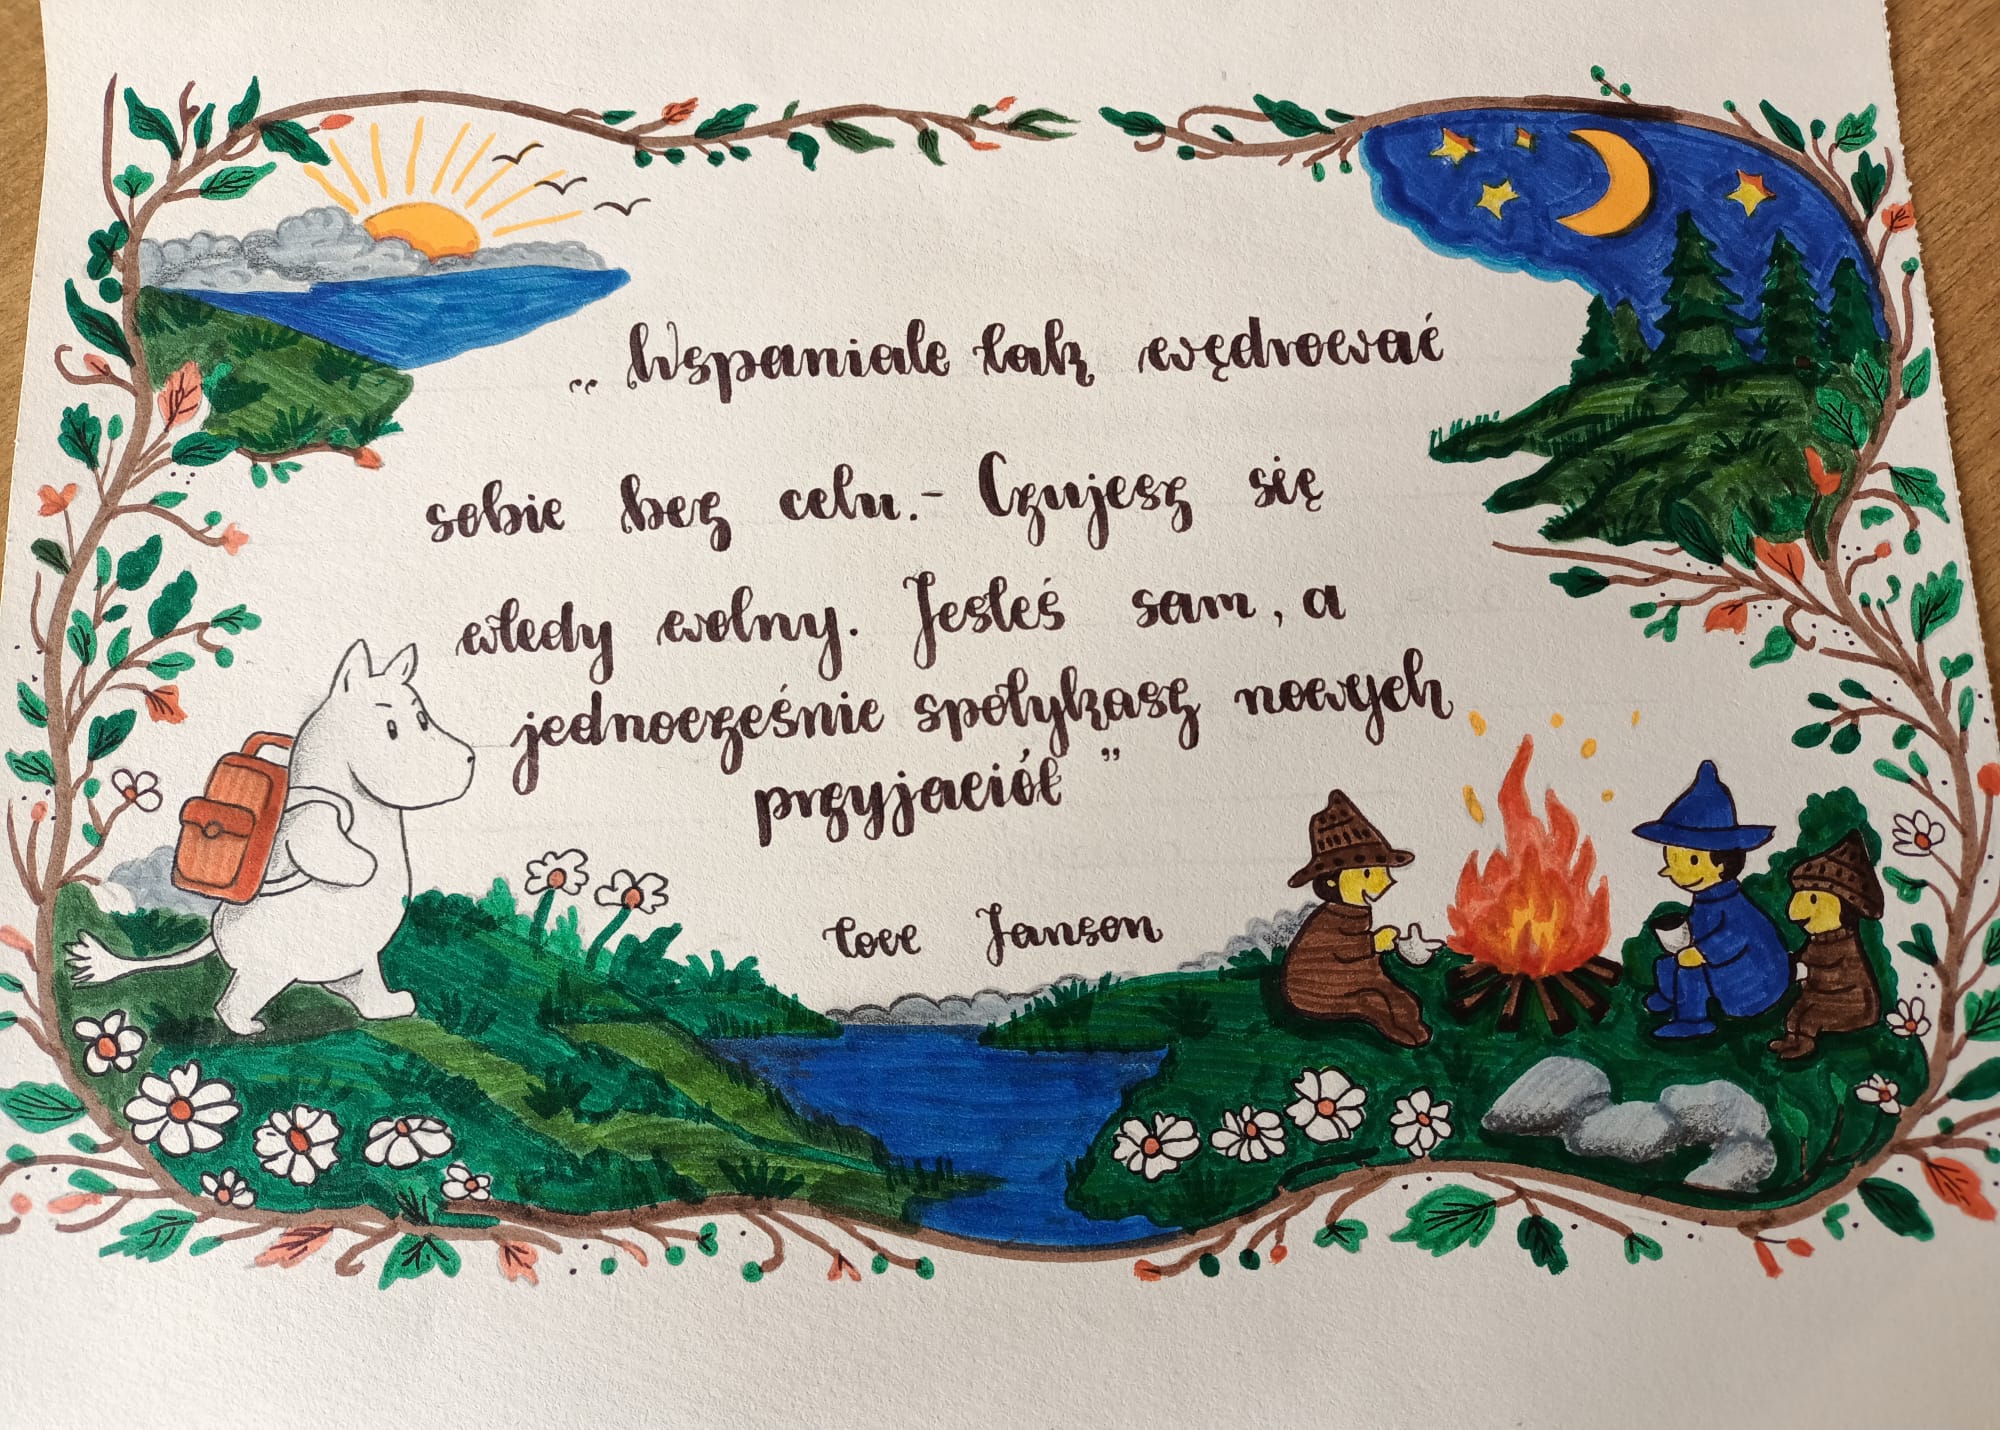 „Wspaniale tak wędrować
sobie bez celu.- Czujesz się
wtedy wolny. Jesteś sam, a
jednocześnie spotykasz nowych
przyjaciół”
Tove Janson